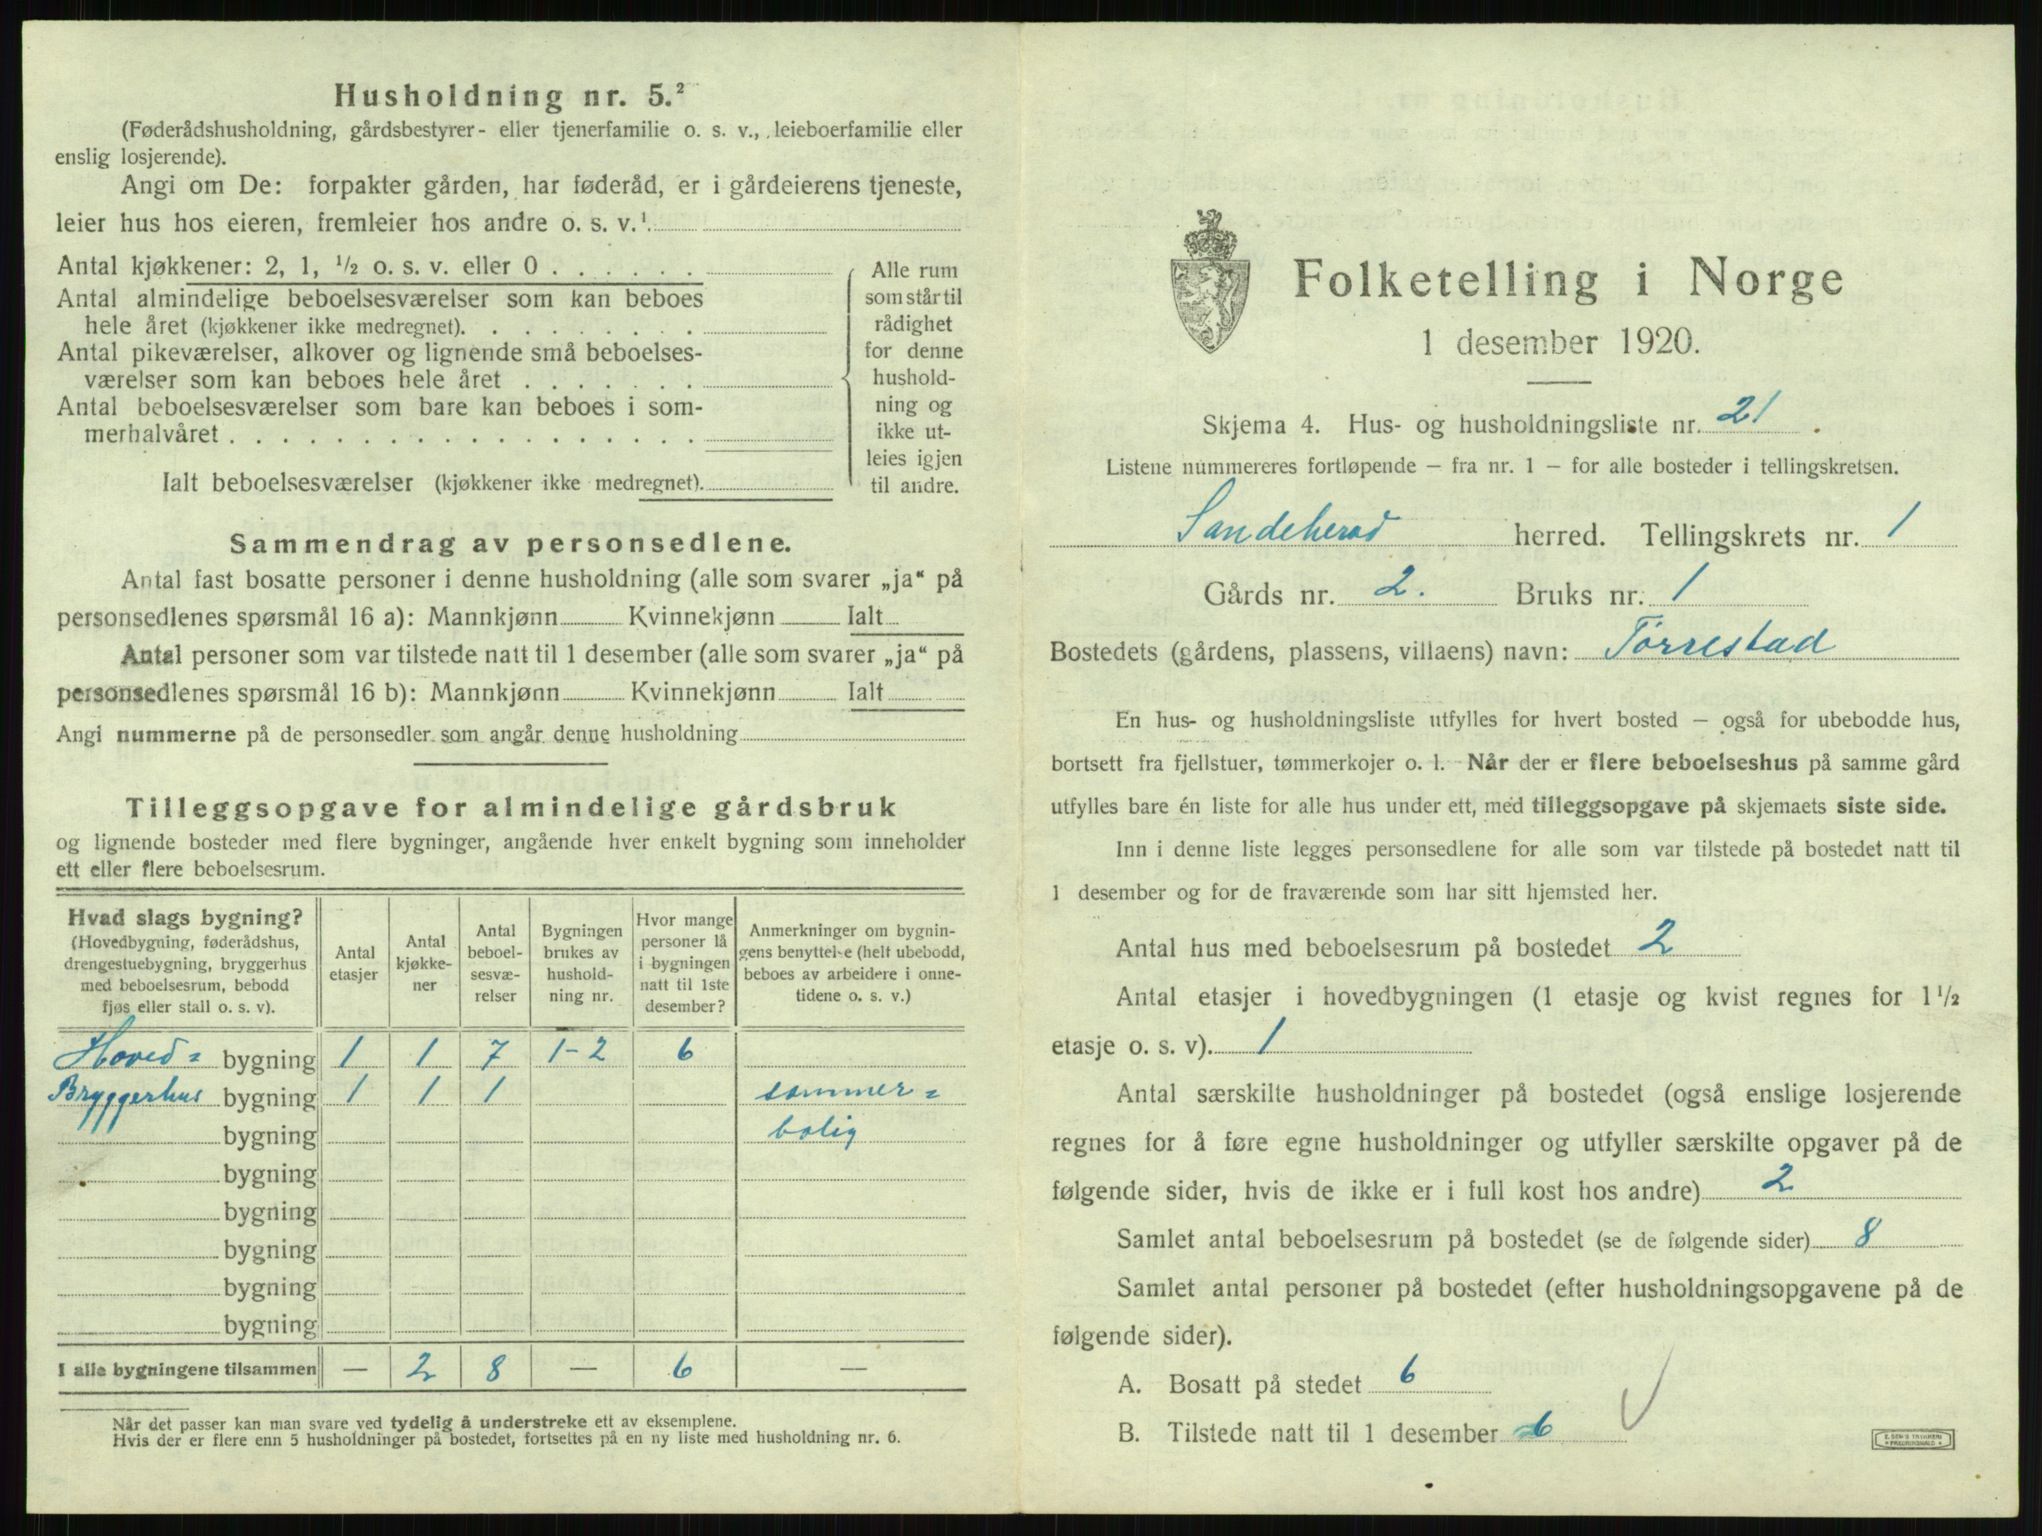 Husholdning nr. 5.²
(Føderådshusholdning, gårdsbestyrer- eller tjenerfamilie o. s. v., leieboerfamilie eller
enslig losjerende).
Angi om De: forpakter gården, har føderåd, er i gårdeierens tjeneste,
leier hus hos eieren, fremleier hos andre o. s. v.¹
Antal kjøkkener: 2, 1, ½ o. s. v. eller 0 . . . . . .
Antal almindelige beboelsesværelser som kan beboes
hele året (kjøkkener ikke medregnet). . . . . . . . .
Antal pikeværelser, alkover og lignende små beboelses-
værelser som kan beboes hele året . . . . . . .
Antal beboelsesværelser som bare kan beboes i som-
merhalvåret . . . . . . . . . . . . . . . . . .
Ialt beboelsesværelser (kjøkkener ikke medregnet).
Alle rum
som står til
rådighet
for denne
hushold-
ning og
ikke ut-
leies igjen
til andre.
Sammendrag av personsedlene.
Antal fast bosatte personer i denne husholdning (alle som svarer „ja“ på
personsedlenes spørsmål 16 a): Mannkjønn Kvinnekjønn Ialt
Antal personer som var tilstede natt til 1 desember (alle som svarer „ja“ på
personsedlenes spørsmål 16 b): Mannkjønn Kvinnekjønn Ialt
Angi nummerne på de personsedler som angår denne husholdning
Tilleggsopgave for almindelige gårdsbruk
og lignende bosteder med flere bygninger, angående hver enkelt bygning som inneholder
ett eller flere beboelsesrum.
Hvad slags bygning?
(Hovedbygning, føderådshus,
drengestuebygning, bryggerhus
med beboelsesrum, bebodd
fjøs eller stall o. s. v).
Antal
etasjer
Antal
kjøkke-
ner
Antal
beboel-
sesvæ-
relser
Bygningen
brukes av
hushold-
ning nr.
Hvor mange
personer lå
i bygningen
natt til 1ste
desember?
Anmerkninger om bygnin-
gens benyttelse (helt ubebodd,
beboes av arbeidere i onne-
tidene o. s. v.)
Hoved- bygning 1 1 7 1-2 6
Bryggerhus bygning 1 1 1 sommer-
bygning bolig
bygning
bygning
bygning
bygning
bygning
I alle bygningene tilsammen — 2 8 — 6 —
Når det passer kan man svare ved tydelig å understreke ett av eksemplene.
Hvis der er flere enn 5 husholdninger på bostedet, fortsettes på en ny liste med husholdning nr. 6.
Folketelling i Norge
1 desember 1920.
Skjema 4. Hus- og husholdningsliste nr. 21.
Listene nummereres fortløpende — fra nr. 1 — for alle bosteder i tellingskretsen.
Sandeherad herred. Tellingskrets nr. 1
Gårds nr. 2. Bruks nr. 1
Bostedets (gårdens, plassens, villaens) navn: Törrestad
En hus- og husholdningsliste utfylles for hvert bosted — også for ubebodde hus,
bortsett fra fjellstuer, tømmerkojer o. l. Når der er flere beboelseshus på samme gård
utfylles bare én liste for alle hus under ett, med tilleggsopgave på skjemaets siste side.
Inn i denne liste legges personsedlene for alle som var tilstede på bostedet natt til
1 desember og for de fraværende som har sitt hjemsted her.
Antal hus med beboelsesrum på bostedet 2
Antal etasjer i hovedbygningen (1 etasje og kvist regnes for 1½
etasje o. s. v). 1
Antal særskilte husholdninger på bostedet (også enslige losjerende
regnes for å føre egne husholdninger og utfyller særskilte opgaver på de
følgende sider, hvis de ikke er i full kost hos andre) 2
Samlet antal beboelsesrum på bostedet (se de følgende sider) 8
Samlet antal personer på bostedet (efter husholdningsopgavene på de
følgende sider).
A. Bosatt på stedet 6
B. Tilstede natt til 1 desember 6